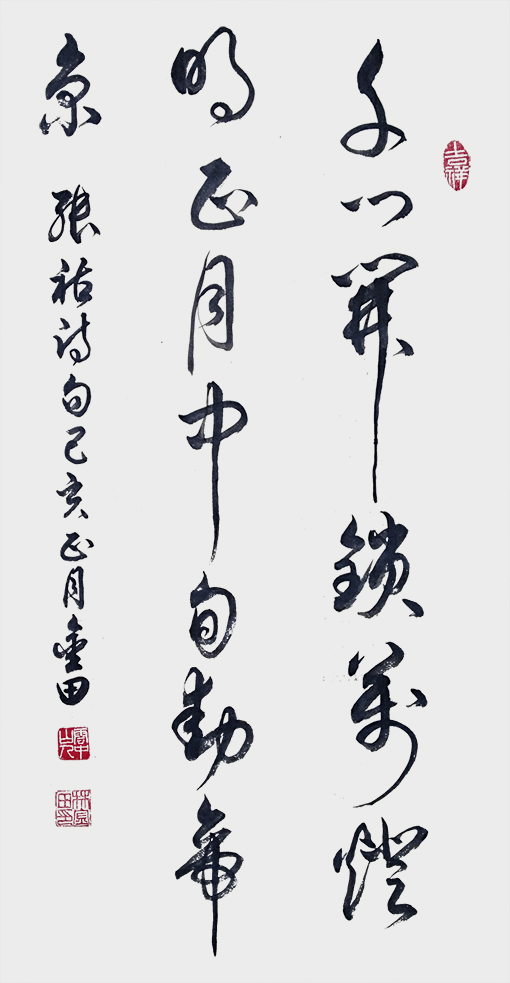 千門開鎖萬燈
明正月中旬動帝
京 張祜詩句己亥正月金田
吉祥